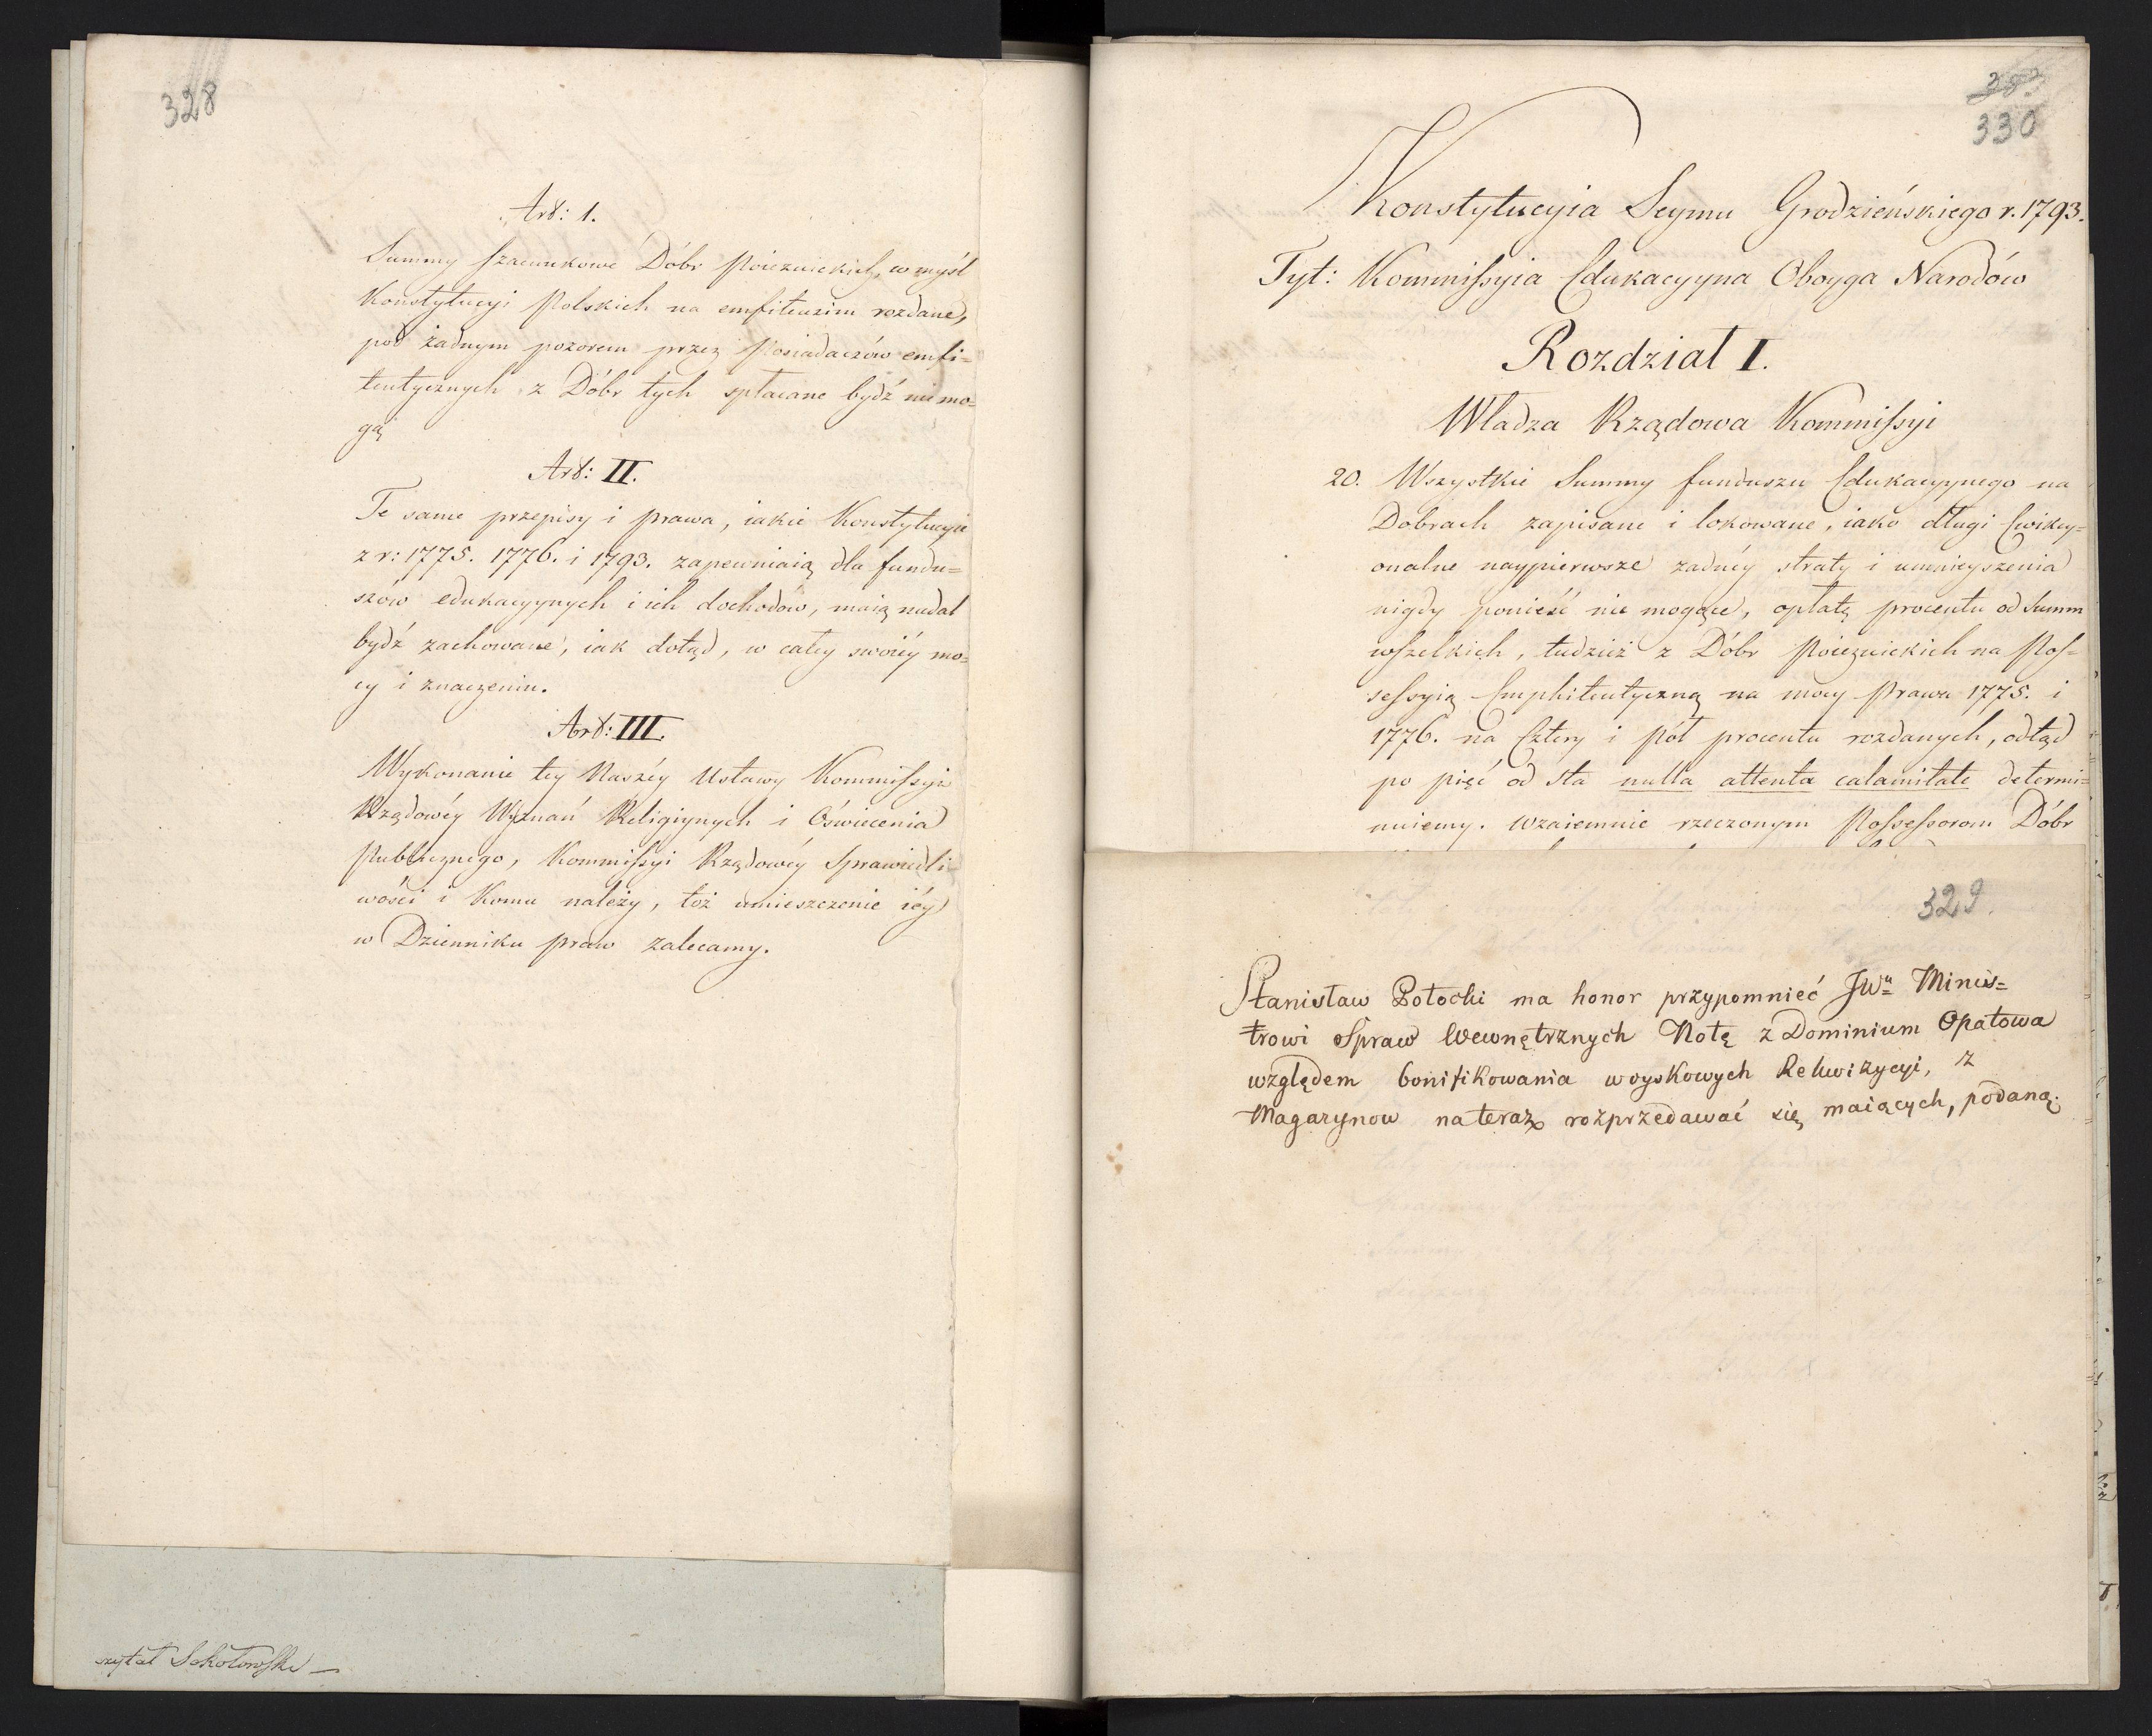 328
Art: 1.
Summy szacunkowe Dóbr Poiezuickich, w myśl
Konstytucyi Polskich na emfiteuzim rozdane,
pod żadnym pozorem przez Posiadaczów emfi=
teutycznych z Dóbr tych spłacane bydź nie mo=
gą
Art: II.
Te same przepisy i prawa, iakie Konstytucyie
z r: 1775. 1776. i 1793. zapewniaią dla fundu=
szów edukacyynych i ich dochodów, maią nadal
bydź zachowane, iak dotąd, w całey swoiéy mo=
cy i znaczeniu.
Art: III.
Wykonanie tey Naszéy Ustawy Kommissyi
Rządowéy Wyznań Religiynych i Oświecenia
Publicznego, Kommissyi Rządowéy Sprawiedli=
wości i Komu należy, toż umieszczenie iéy
w Dzienniku praw zalecamy.
czytał Sokołowski
383
330
Konstytucyia Seymu Grodzieńskiego r. 1793.
Tyt: Kommissyia Edukacyyna Oboyga Narodów
Rozdział I.
Władza Rządowa Kommissyi
20. Wszystkie Summy funduszu Edukacyynego na
Dobrach zapisane i lokowane, iako długi Ewikcy=
onalne naypierwsze żadnéy straty i umnieyszenia
nigdy ponieść nie mogące, opłatę procentu od Summ
wszelkich, tudzież z Dóbr Poiezuickich na Pos=
sessyią Emphiteutyczną na mocy Prawa 1775. i
1776. na Cztery i pół procentu rozdanych, odtąd
po pięć od sta nulla attenta calamitate determi=
nuiemy. Wzaiemnie rzeczonym Possessorom Dóbr
329.
Stanisław Potocki ma honor przypomnieć JWu Minis=
trowi Spraw Wewnętrznych Notę z Dominium Opatowa
względem bonifikowania woyskowych Rekwizycyi, z
Magazynow na teraz rozprzedawać się maiących, podaną.